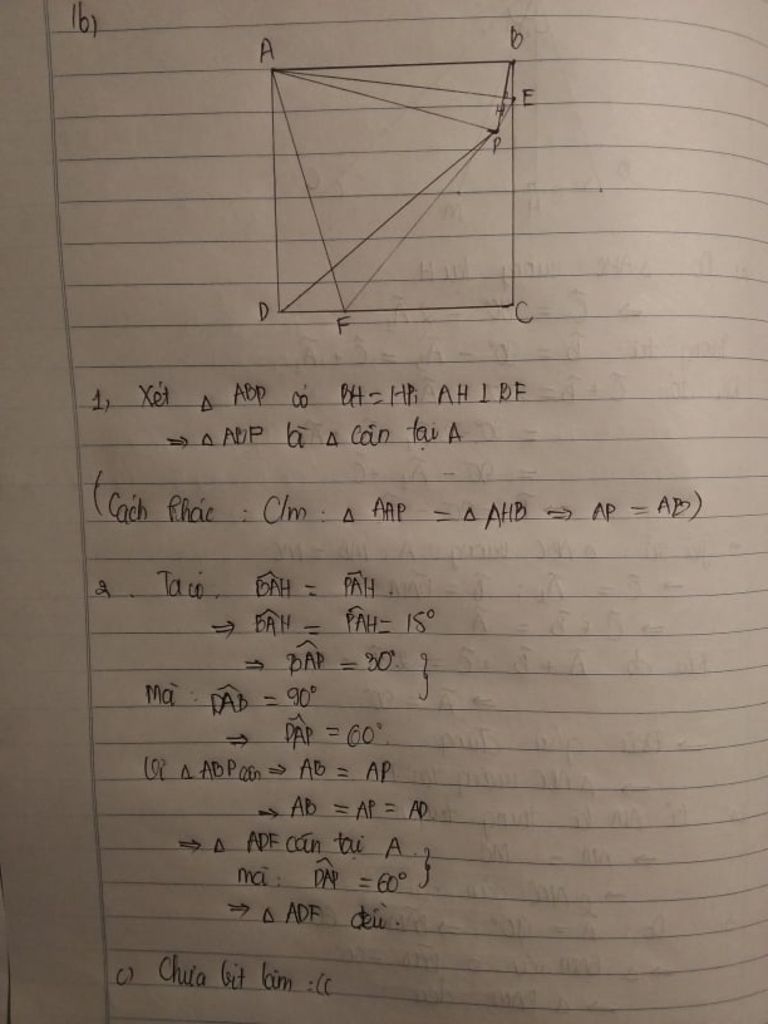 1b)
A
B
E
H
P
D
F
C
1, Xét △ ABP có BH = HP; AH ⊥ BF
⇒ △ ABP là △ cân tại A
(Cách khác : C/m : △ AAP = △ AHB ⇒ AP = AB)
2. Ta có. BAH = PAH.
⇒ BAH = PAH = 15°
⇒ BAP = 30° }
mà : DAB = 90°
⇒ DAP = 60°.
Vì △ ABP cân ⇒ AB = AP
⇒ AB = AP = AD
⇒ △ ADF cân tại A. }
mà : DAP = 60°
⇒ △ ADF đều.
c) Chưa bít làm :((